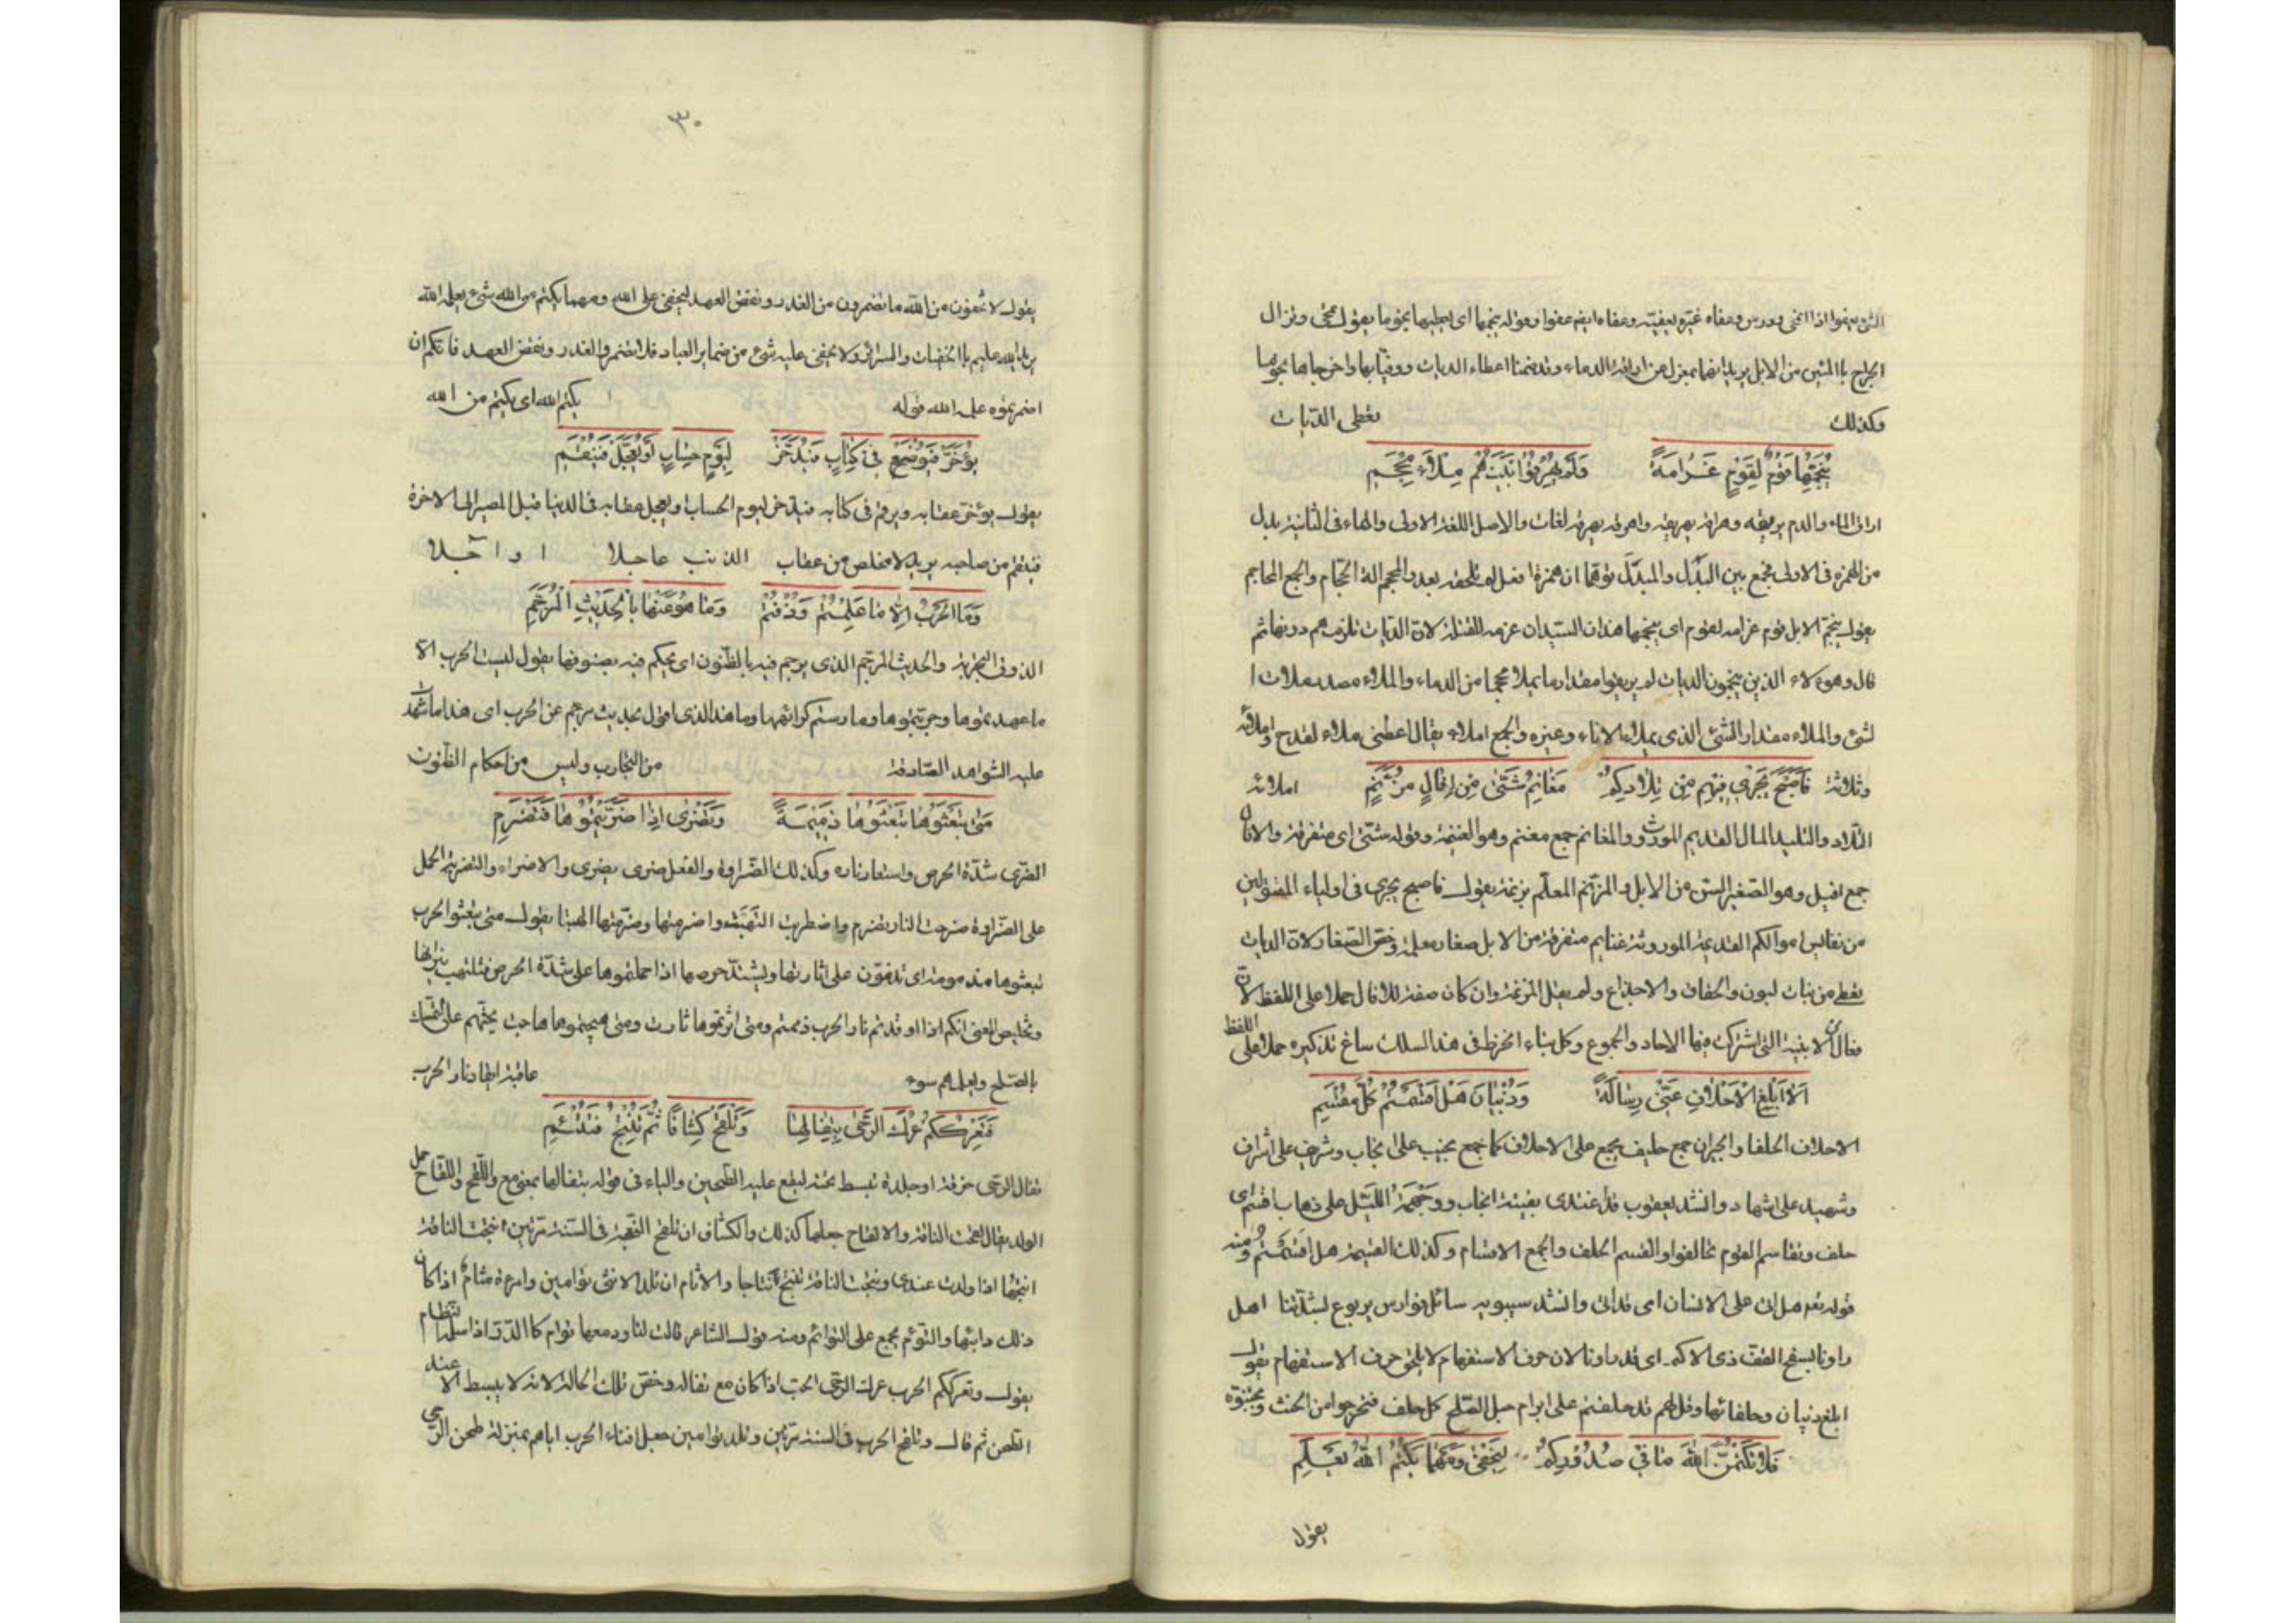 الشئ يعفوا اذا انمحى ودرس وعفاه غيره يعفيه وعفاه ايضا عفوا وقوله ينجمها اى يعطيها نجوما يقول تمحى وتزال
الجراح باالمئين من الابل يريد انها بمعزل عن اراقة الدماء وقد ضمنا اعطاء الديات ووفيا بها واخرجاها نجوما
وكذلك تعطى الديات
يُنَجِّمُهَا قَوْمٌ لِقَوْمٍ غَرَامَةً وَلَمْ يُهَرِيْقُوا بَيْنَهُم مِلَاءَ مِحْجَمِ
اراق الماء والدم يريقه وهراقه يهريقه واهرقه يهرقه لغات والاصل اللغة الاولى والهاء فى الثانية بدل
من الهمزة فى الاولى فجمع بين البدل والمبدل توهما ان همزة افعل لم تلحقه بعد والمحجم الة الحجام والجمع المحاجم
يقول ينجم الابل قوم غرامة لقوم اى ينجمها هذان السيدان غرامة للقتلى لان الديات تلزمهم دونهما ثم
قال وهؤلاء الذين ينجمون الديات لم يريقوا مقدار ما يملا محجما من الدماء والملاء مصدر ملات ا
لشئ والملاء مقدار الشئ الذى يملاء الاناء وغيره والجمع املاء يقال اعطنى ملاء القدح واملائه
وثلاثة املائه فَاَصْبَحَ يَجْرِي فِيْهِمِ مِنْ تِلَادِيكُمْ مَغَانِمُ شَتّٰى مِنْ اِفَالٍ مُزَنَّمٍ
التلاد والتليد المال القديم الموروث والمغانم جمع مغنم وهو الغنيمة وقوله شتى اى متفرقة والافال
جمع افيل وهو الصغير السن من الابل والمزنم المعلم بزنمة يقول فاصبح يجرى فى اولياء المقتولين
من نفائس اموالكم القديمة الموروثة غنايم متفرقة من الابل صغار معلمة وخص الصغار لان الديات
تعطى من بنات لبون والحقاق والاجذاع ولم يقل المزنمة وان كان صفة للافال حملا على اللفظ لان
فعالا من الابنية التى اشترك فيها الاحاد والجموع وكل بناء انخرط فى هذا السلك ساغ تذكيره حملا على اللفظ
اَلَا اَبْلِغِ الْاَحْلَافِ عَنِّي رِسَالَةً وَذُبْيَانَ هَلْ اَقْسَمْتُمُ كُلَّ مُقْسَمِ
الاحلاف الحلفا والجيران جمع حليف يجمع على الاحلاف كما جمع نجيب على انجاب وشريف على اشراف
وشهيد على اشهاد وانشد ليعقوب قد اغتدى بفينة انجاب ووجهمة الليل على ذهاب اقسم اى
حلف وتقاسم القوم تحالفوا والقسم الحلف والجمع الاقسام وكذلك القسيمة هل اقسمتم ومنه
قوله تعم هل اتى على الانسان اى قد اتى وانشد سيبويه سائل فوارس يربوع لشدتنا اهل
راونا بسفح القف ذى الاكم اى قد راونا لان حرف الاستفهام لا يلحق حرف الاستفهام يقول
ابلغ ذبيان وحلفائها وقل لهم قد حلفتم على ابرام حبل الصلح كل حلف فتحرجوا من الحنث وتجنبوه
فَلَا تَكْتُمُنَّ اللّٰهَ مَا فِي صُدُوْرِكُمْ لِيَخْفٰى وَمَهْمَا يُكْتَمُ اللّٰهُ يَعْلَمِ
يقول
٣٠
يقول لا تخفون من الله ما تضمرون من الغدر ونقض العهد ليخفى على الله ومهما يكتم من الله شئ يعلمه الله
يريد ان الله عليم باالخفيات والسرائر ولا يخفى عليه شئ من ضماير العباد فلا تضمروا الغدر ونقض العهد فانكم ان
اضمرتموه علمه الله قوله يكتم الله اى يكتم من الله
يُؤَخَّرْ فَيُوْضَعْ فِي كِتَابٍ فَيُدَّخَرْ لِيَوْمِ حِسَابٍ اَوْ يُعَجَّلْ فَيُنْقَمِ
يقول يؤخر عقابه ويرقم فى كتابه فيدخر ليوم الحساب او يعجل عقابه فى الدنيا قبل المصير الى الاخرة
فينتقم من صاحبه يريد لا مخلص من عقاب الذنب عاجلا ا و ا آجلا
وَمَا الْحَرْبُ اِلَّا مَا عَلِمْتُمْ وَذُقْتُمْ وَمَا هُوَ عَنْهَا بِالْحَدِيْثِ الْمُرَجَّمِ
الذوق التجربة والحديث المرجم الذى يرجم فيه بالظنون اى يحكم فيه بصنوفها يقول ليست الحرب الا
ما عهدتموها وجربتموها ومارستم كرائهها وما هذا الذى اقول بحديث مرجم عن الحرب اى هذا ما شهدت
عليه الشواهد الصادقة من التجارب وليس من احكام الظنون
مَتٰى تَبْعَثُوْهَا تَبْعَثُوْهَا ذَمِيْمَةً وَتَضْرٰى اِذَا ضَرَّيْتُمُوْهَا فَتَضْرَمِ
الضرى شدة الحرص واستعار ناره وكذلك الضراوة والفعل ضرى يضرى والاضراء والتضرية الحمل
على الضراوة ضرمت النار تضرم واضطرمت التهبت واضرمتها وضرمتها الهبتا يقول متى تبعثوا الحرب
تبعثوها مذمومة اى تذمون على اثارتها ويشتد حرصها اذا حملتموها على شدة الحرص فتلتهب نيرانها
وتلخيص المعنى انكم اذا اوقدتم نار الحرب ذممتم ومتى اثرتموها ثارت ومتى هيجتموها هاجت يحثهم على التمسك
بالصلح ويعلمهم سوء عاقبة ايقاد نار الحرب
فَتَعْرُكْكُمُ عَرْكَ الرَّحٰى بِثِفَالِهَا وَتَلْقَحْ كِشَافًا ثُمَّ تُنْتِجْ فَتُتْئِمِ
ثفال الرحى خرقة او جلدة تبسط تحته ليقع عليه الطحين والباء فى قوله بثفالها بمعنى مع واللقح واللقاح حمل
الولد يقال لقحت الناقة والالقاح جعلها كذلك والكشاف ان تلقح النعجة فى السنة مرتين انتجت الناقة
انتجها اذا ولدت عندى ونتجت الناقة تنتج نتاجا والاتآم ان تلد الانثى توامين وامرءة متئام اذا كان
ذلك دابها والتوئم يجمع على التوائم ومنه قول الشاعر قالت لنا ودمعها توام كا الدر اذا اسلمه النظام
يقول وتعرككم الحرب عرك الرحى الحب اذا كان مع ثفاله وخص تلك الحالة لانه لا يبسط الا عند
الطحن ثم قال وتلقح الحرب فى السنة مرتين وتلد توامين جعل افناء الحرب اياهم بمنزلة طحن الرحى